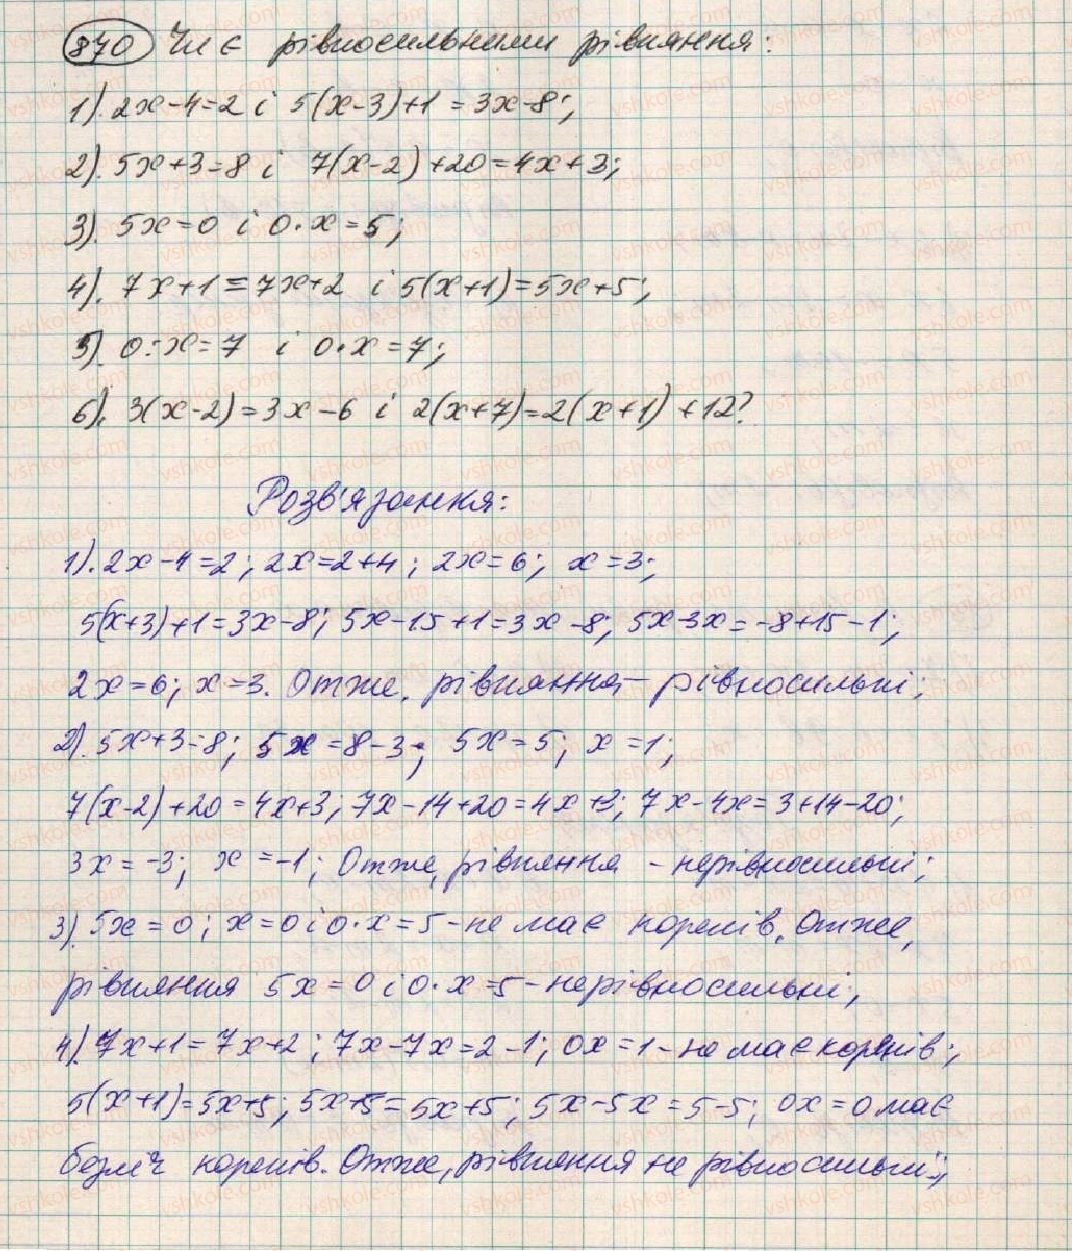 840 Чи є рівносильними рівняння:
1). 2x-4=2 і 5(x-3)+1=3x-8;
2). 5x+3=8 і 7(x-2)+20=4x+3;
3). 5x=0 і 0·x=5;
4). 7x+1=7x+2 і 5(x+1)=5x+5;
5). 0:x=7 і 0·x=7;
6). 3(x-2)=3x-6 і 2(x+7)=2(x+1)+12?
Розв'язання:
1). 2x-4=2; 2x=2+4; 2x=6; x=3;
5(x+3)+1=3x-8; 5x-15+1=3x-8; 5x-3x=-8+15-1;
2x=6; x=3. Отже, рівняння – рівносильні;
2). 5x+3=8; 5x=8-3; 5x=5; x=1;
7(x-2)+20=4x+3; 7x-14+20=4x+3; 7x-4x=3+14-20;
3x=-3; x=-1; Отже, рівняння - нерівносильні;
3). 5x=0; x=0 і 0·x=5-не має коренів. Отже,
рівняння 5x=0 і 0·x=5-нерівносильні;
4). 7x+1=7x+2; 7x-7x=2-1; 0x=1-не має коренів;
5(x+1)=5x+5; 5x+5=5x+5; 5x-5x=5-5; 0x=0 має
безліч коренів. Отже, рівняння не рівносильні;